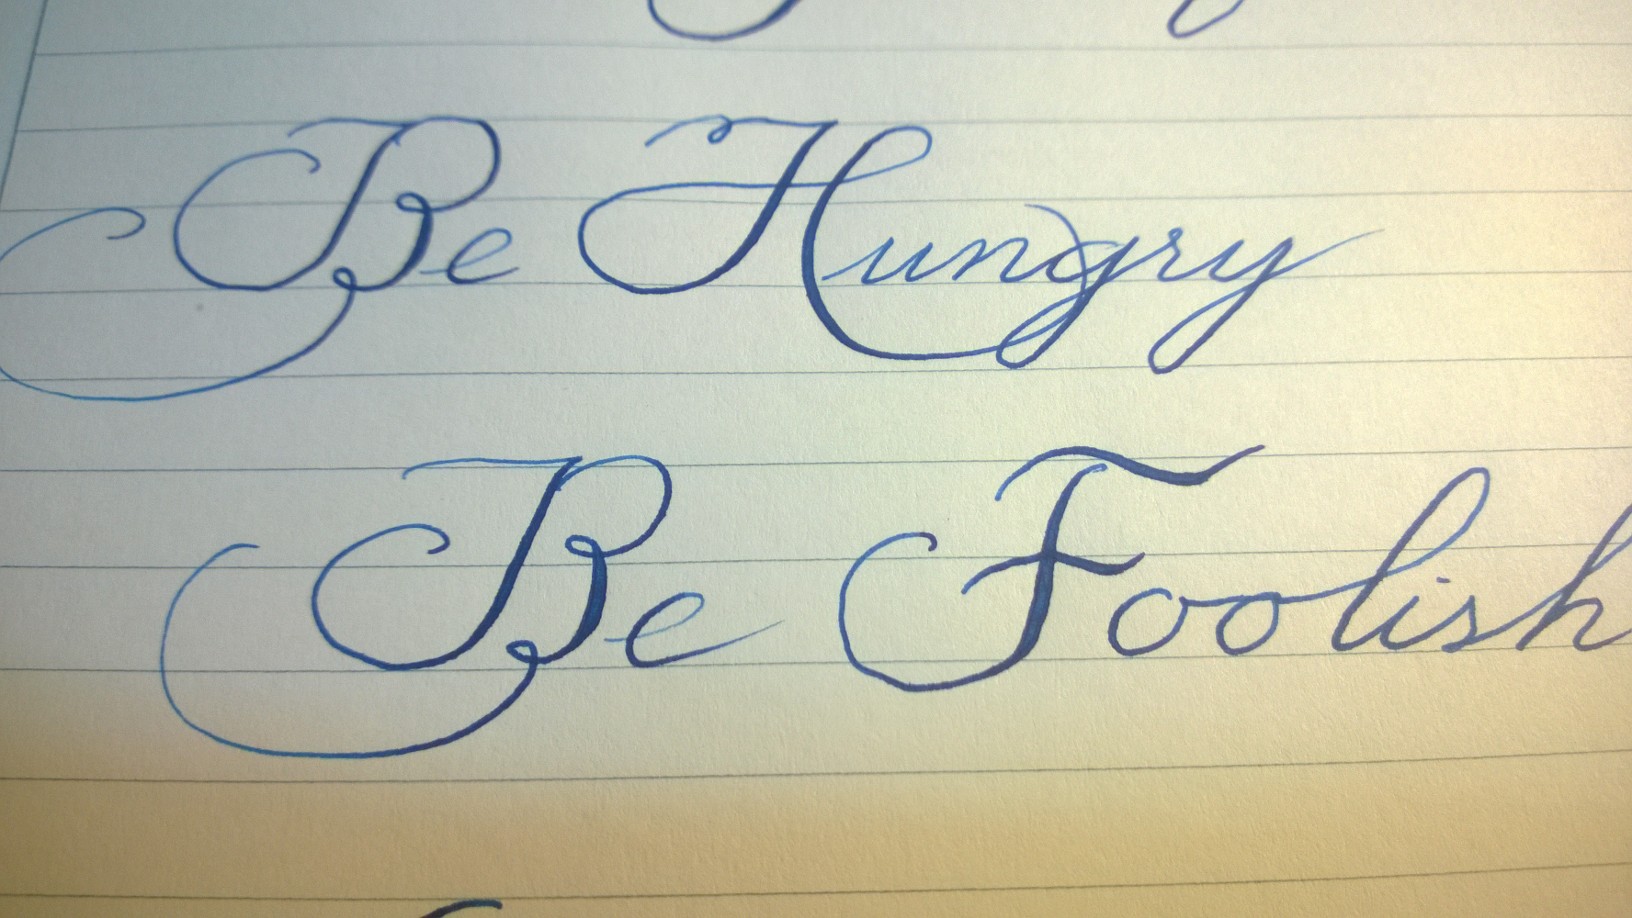 Be Hungry
Be Foolish